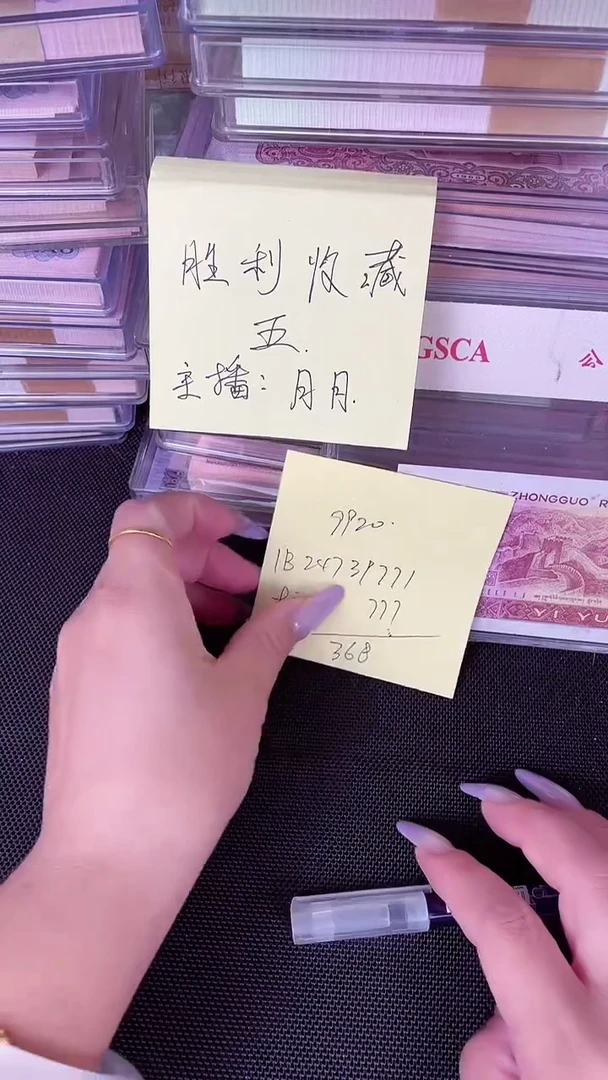 胜利收藏
五.
主播：月月.
GSCA 公
ZHONGGUO R
YI YU
9920.
1B24739771
777
368